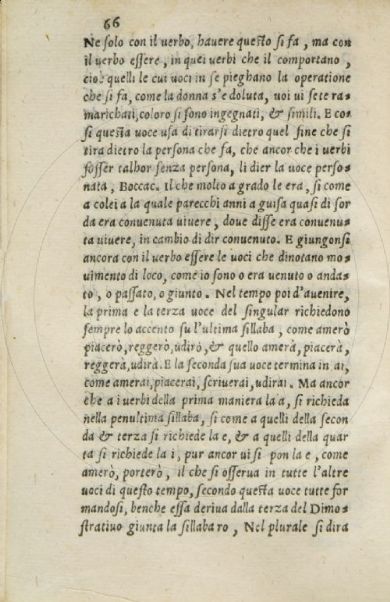 66
Ne solo con il uerbo, hauere questo si fa, ma con
il uerbo essere, in quei uerbi che il comportano,
cioè quelli le cui uoci in se pieghano la operatione
che si fa, come la donna s'e doluta, uoi ui sete ra=
marichati, coloro si sono ingegnati, & simili. E co=
si questa uoce usa di tirarsi dietro quel fine che si
tira dietro la persona che fa, che ancor che i uerbi
fosser talhor senza persona, li dier la uoce perso=
nata, Boccac. Il che molto a grado le era, si come
a colei a la quale parecchi anni a guisa quasi di sor
da era conuenuta uiuere, doue disse era conuenu=
ta uiuere, in cambio di dir conuenuto. E giungonsi
ancora con il uerbo essere le uoci che dinotano mo=
uimento di loco, come io sono o era uenuto o anda=
to, o passato, o giunto. Nel tempo poi d'auenire,
la prima e la terza uoce del singular richiedono
sempre lo accento su l'ultima sillaba, come amerò
piacerò, reggerò, udirò, & quello amerà, piacerà,
reggerà, udirà. E la seconda sua uoce termina in ai,
come amerai, piacerai, scriuerai, udirai. Ma ancor
che a i uerbi della prima maniera la a, si richieda
nella penultima sillaba, si come a quelli della secon
da & terza si richiede la e, & a quelli della quar
ta si richiede la i, pur ancor ui si pon la e, come
amerò, porterò, il che si osserua in tutte l'altre
uoci di questo tempo, secondo questa uoce tutte for
mandosi, benche essa deriua dalla terza del Dimo=
stratiuo giunta la sillaba ro, Nel plurale si dira